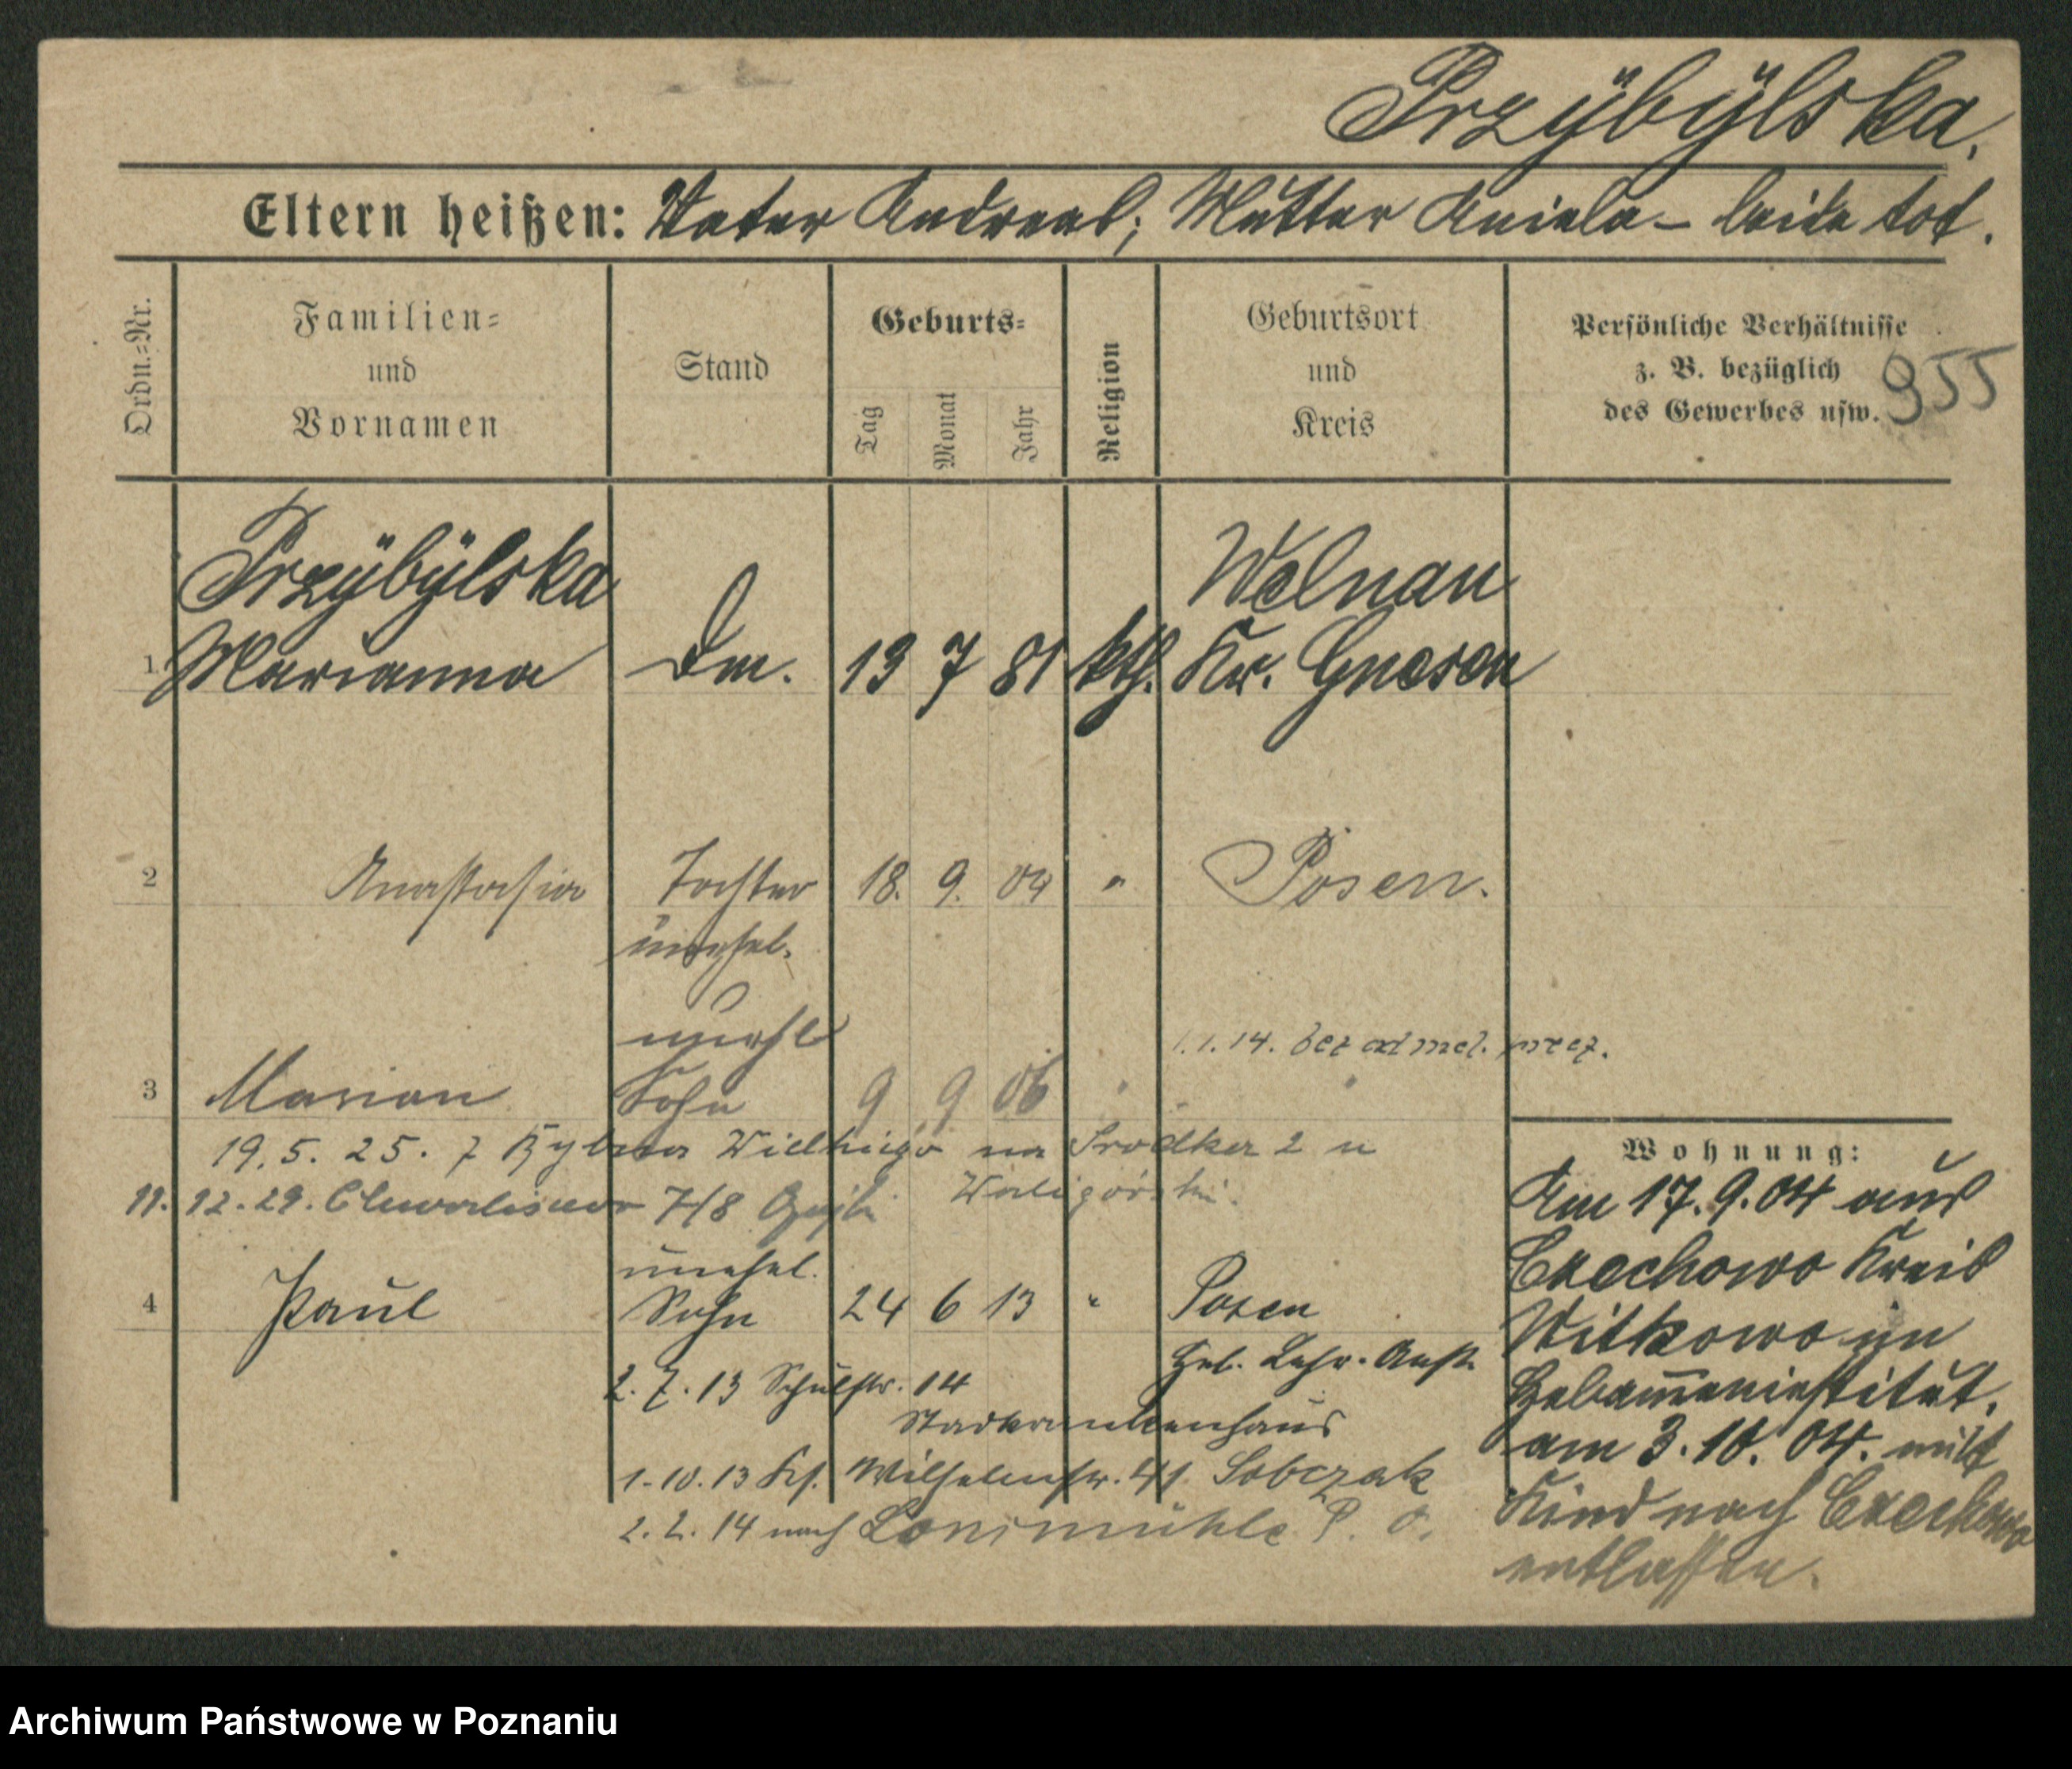 Przÿbÿlska.
Eltern heißen: Vater Andreas; Mutter Aniela – beide tot.
Ordn.=Nr.
Familien=
und
Vornamen
Stand
Geburts=
Tag
Monat
Jahr
Religion
Geburtsort
und
Kreis
Persönliche Verhältnisse
z. B. bezüglich
des Gewerbes usw.
955
Przÿbÿlska
Welnau
1 Marianna Dm. 13 7 81 kth. Kr. Gnesen
2 Anastasia Tochter 18. 9. 04 " Posen.
unehel.
unehl
1.1.14. bez odmel.
3 Marian Sohn 9 9 06 "
19.5.25. z Rybna Wielkiego na Środka 2 u
Waligórski.
11.12.29. Chwaliszewo 7/8
unehel.
4 Paul Sohn 24 6 13 " Posen
Heb. Lehr. Anst.
2.7.13 Schulstr. 14
Stadkrankenhaus
1.10.13 Wilhelmstr. 41. Sobczak
2.2.14 nach Lonsmühle P. O.
Wohnung:
Am 17.9.04 aus
Czechowo Kreis
Witkowo im
Hebammeninstitut.
am 3.10.04. mit
Kind nach Czechowo
entlassen.
Archiwum Państwowe w Poznaniu